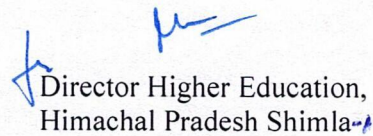 Director Higher Education,
Himachal Pradesh Shimla